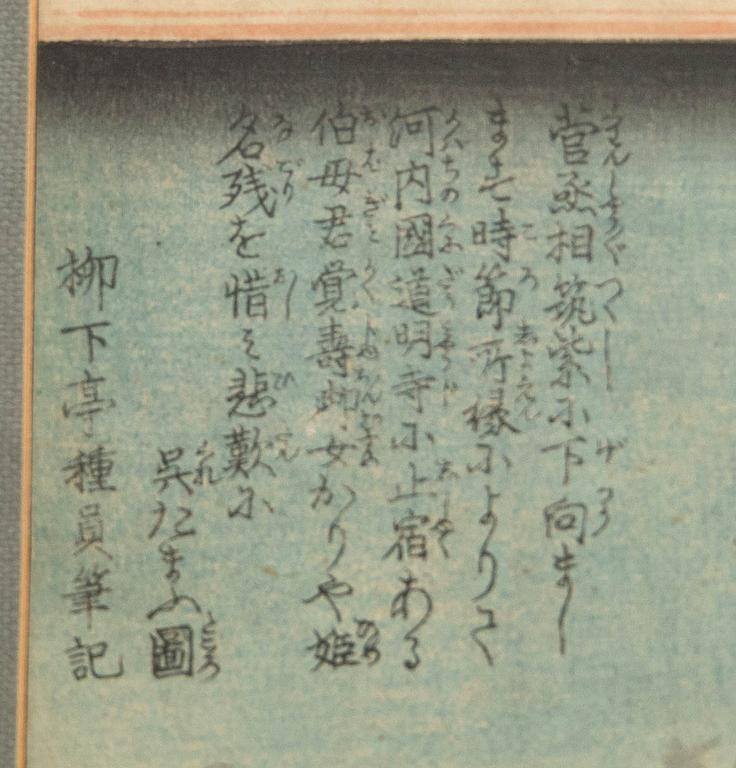 菅丞相筑紫に下向まし
ます時節所縁によりて
河内國道明寺に止宿ある
伯母君覚壽 女かりや姫
名残を惜みて悲歎に
呉たまふ圖
柳下亭種員筆記